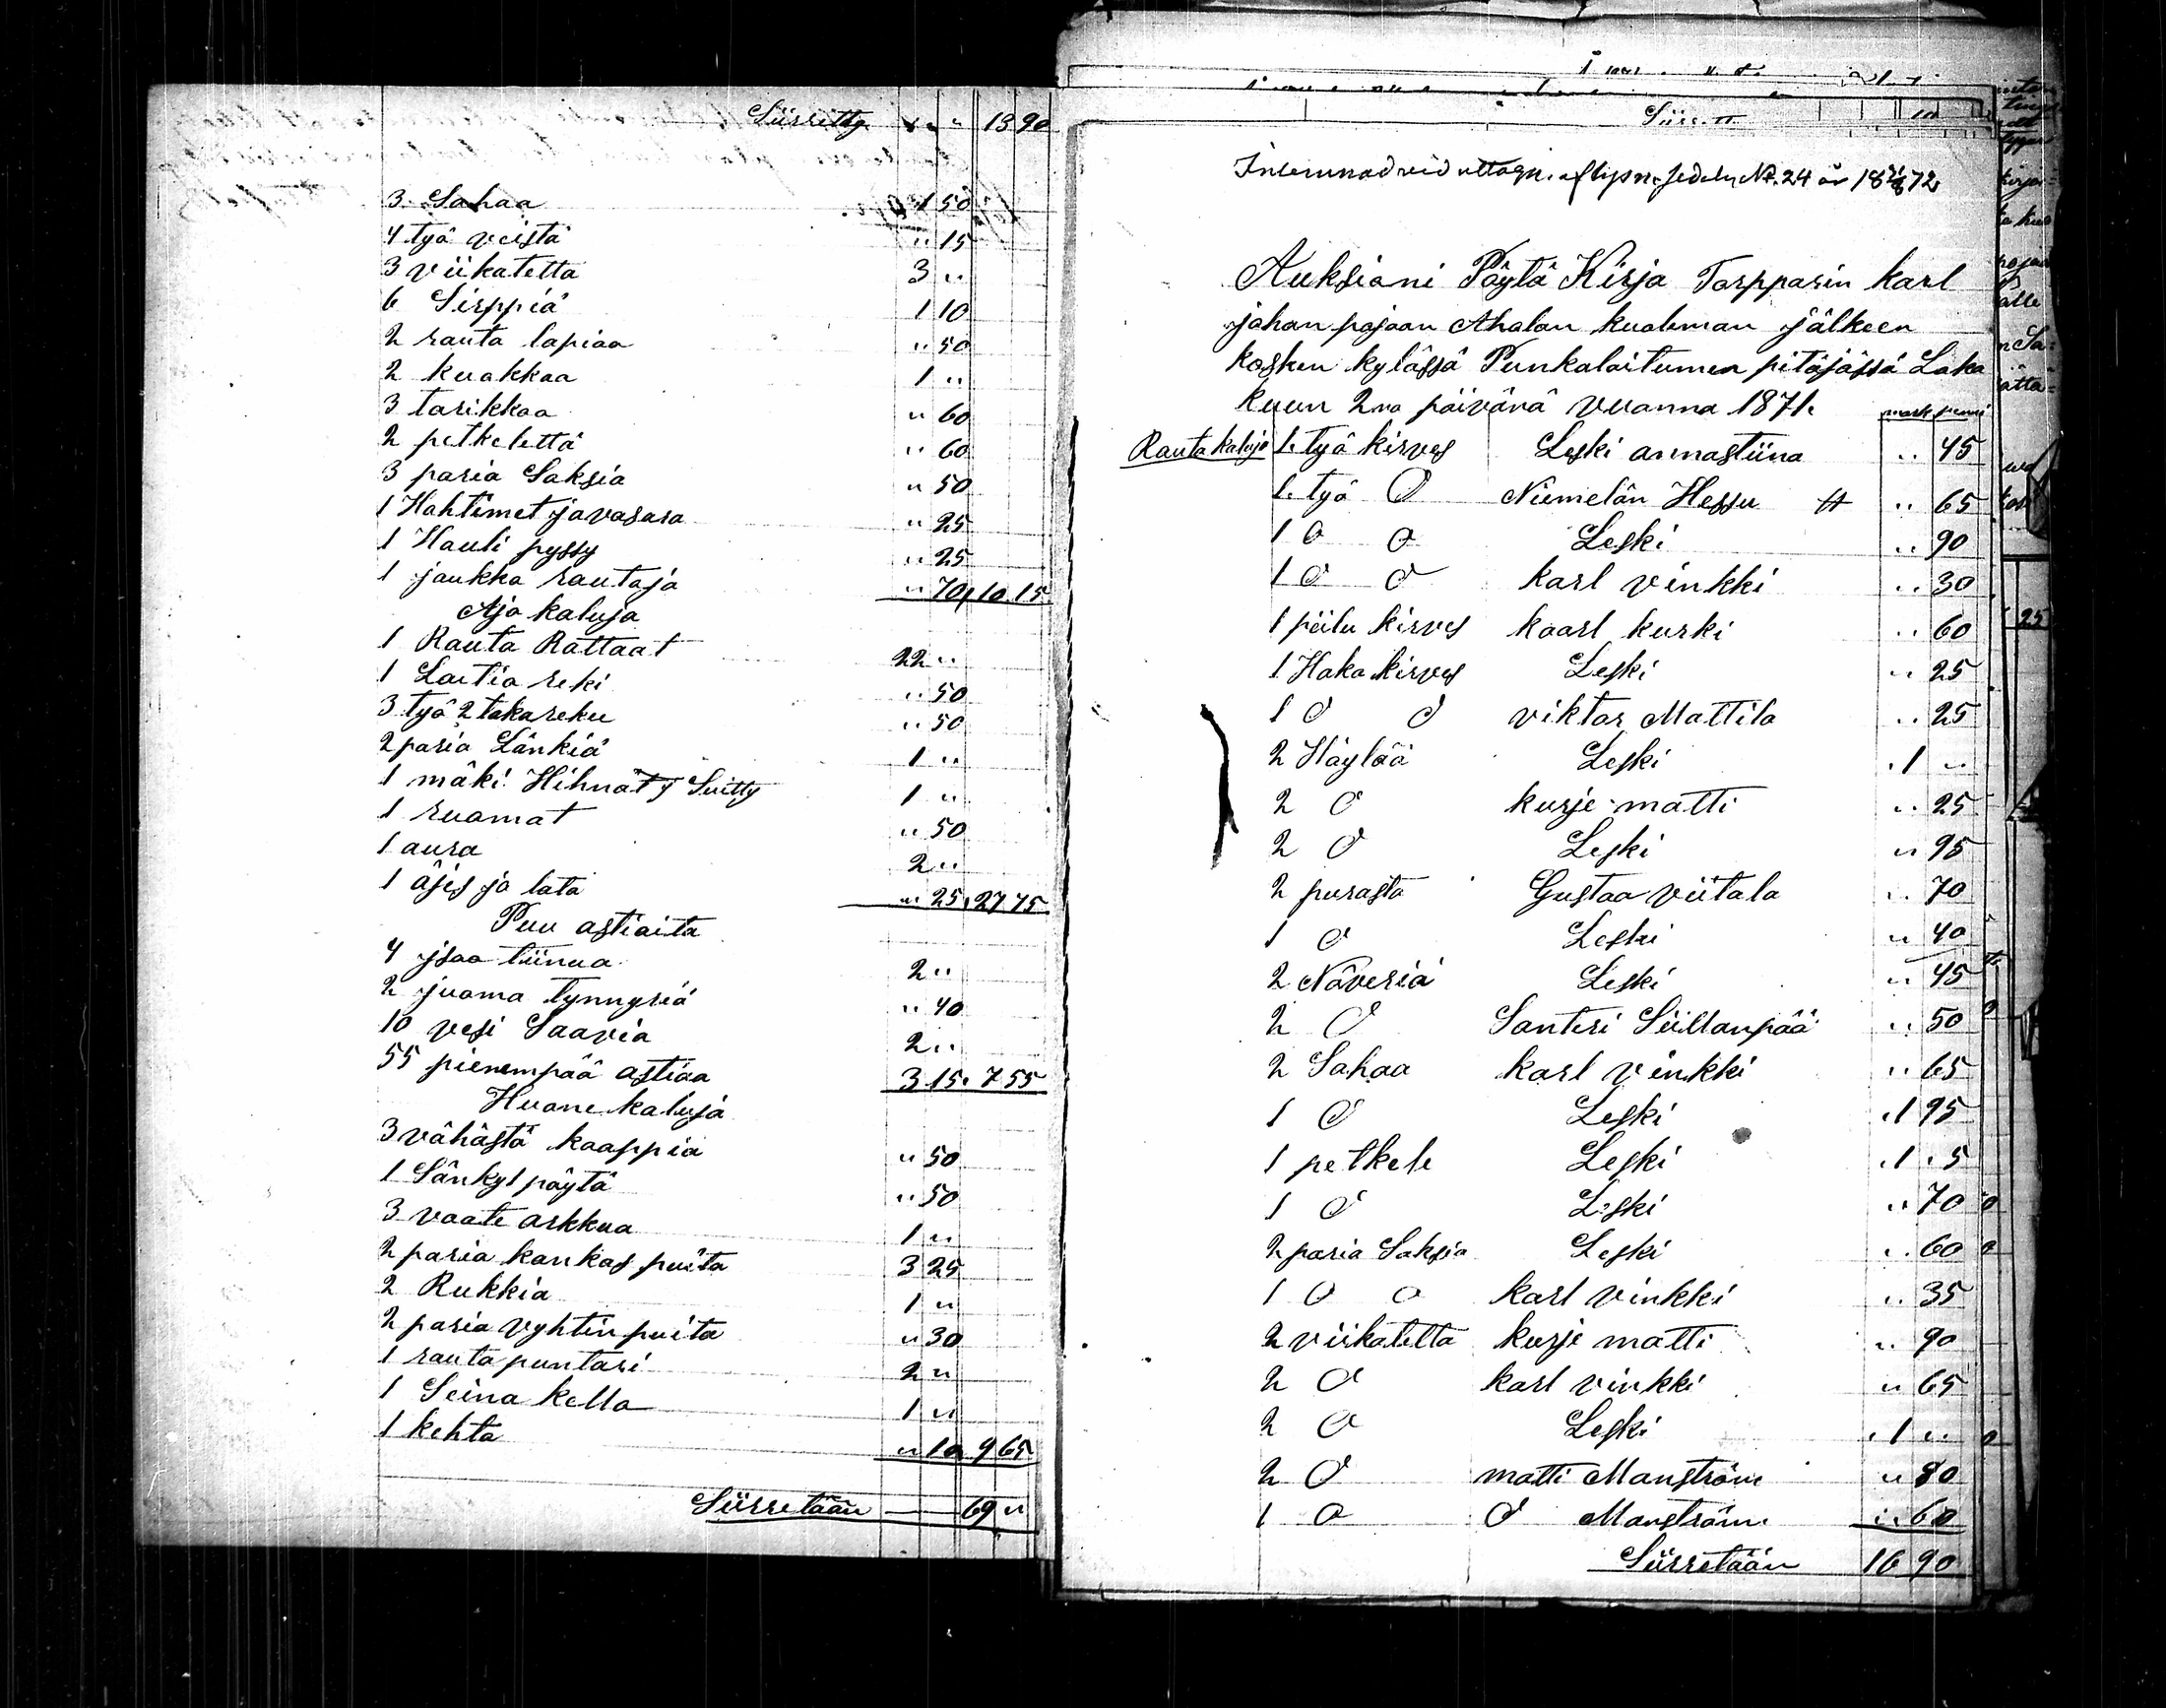 Siirretty " " 13 90
3 Sahaa 1 50
4 työ veistä " 15
3 viikatetta 3 "
6 Sirppiä 1 10
2 rauta lapiaa " 50
2 kuakkaa 1 "
3 tarikkaa " 60
2 petkelettä " 60
3 paria Saksia " 50
1 Hahtimet ja vasara " 25
1 Hauli pyssy " 25
1 joukko rautaja " 70 10 15
Ajo kaluja
1 Rauta Rattaat 22 "
1 Laitia reki " 50
3 työ 2 takareku " 50
2 paria Länkiä 1 "
1 mäki Hihnat j Suitty 1 "
1 ruamat " 50
1 aura 2 "
1 äjes ja lata " 25 27 75
Puu astiaita
4 jsaa tiinua 2 "
2 juama tynnyriä " 40
10 vesi Saavia 2 "
55 pienempää astiaa 3 15 7 55
Huane kaluja
3 vähästä kaappia " 50
1 Sänky 1 pöytä " 50
3 vaate arkkua 1 "
2 paria kankas puita 3 25
2 Rukkia 1 "
2 paria vyhtin puita " 30
1 rauta puntari 2 "
1 Seina kello 1 "
1 kehto " 10 9 65
Siirretään 69 "
Inlemnad vid uttagn. af N:o 24 år 1872
Auksioni Pöytä Kirja Torpparin karl
johan pojaan Ahalan kualeman jälkeen
kosken kylässä Punkalaitumen pitäjässä Loka
kuun 2na päivänä vuanna 1871. mark penni
Rauta kaluja 1 työ kirves Leski annastiina " 45
1 työ O Niemelän Hessu " 65
1 O O Leski " 90
1 O O karl vinkki " 30
1 piilu kirves kaarl kurki " 60
1 Haka kirves Leski " 25
1 O O viktor Mattila " 25
2 Häylää Leski 1 "
2 O kurje matti " 25
2 O Leski " 95
2 purasta Gustaa viitala " 70
1 O Leski " 40
2 Näveriä Leski " 45
2 O Santeri Siillanpää " 50
2 Sahaa karl vinkki " 65
1 O Leski 1 95
1 petkele Leski 1 5
1 O Leski " 70
2 paria Saksia Leski " 60
1 O O karl vinkki " 35
2 viikatetta kurje matti " 90
2 O karl vinkki " 65
2 O Leski 1 "
2 O matti Manström " 80
1 O O Manström " 60
Siirretään 16 90